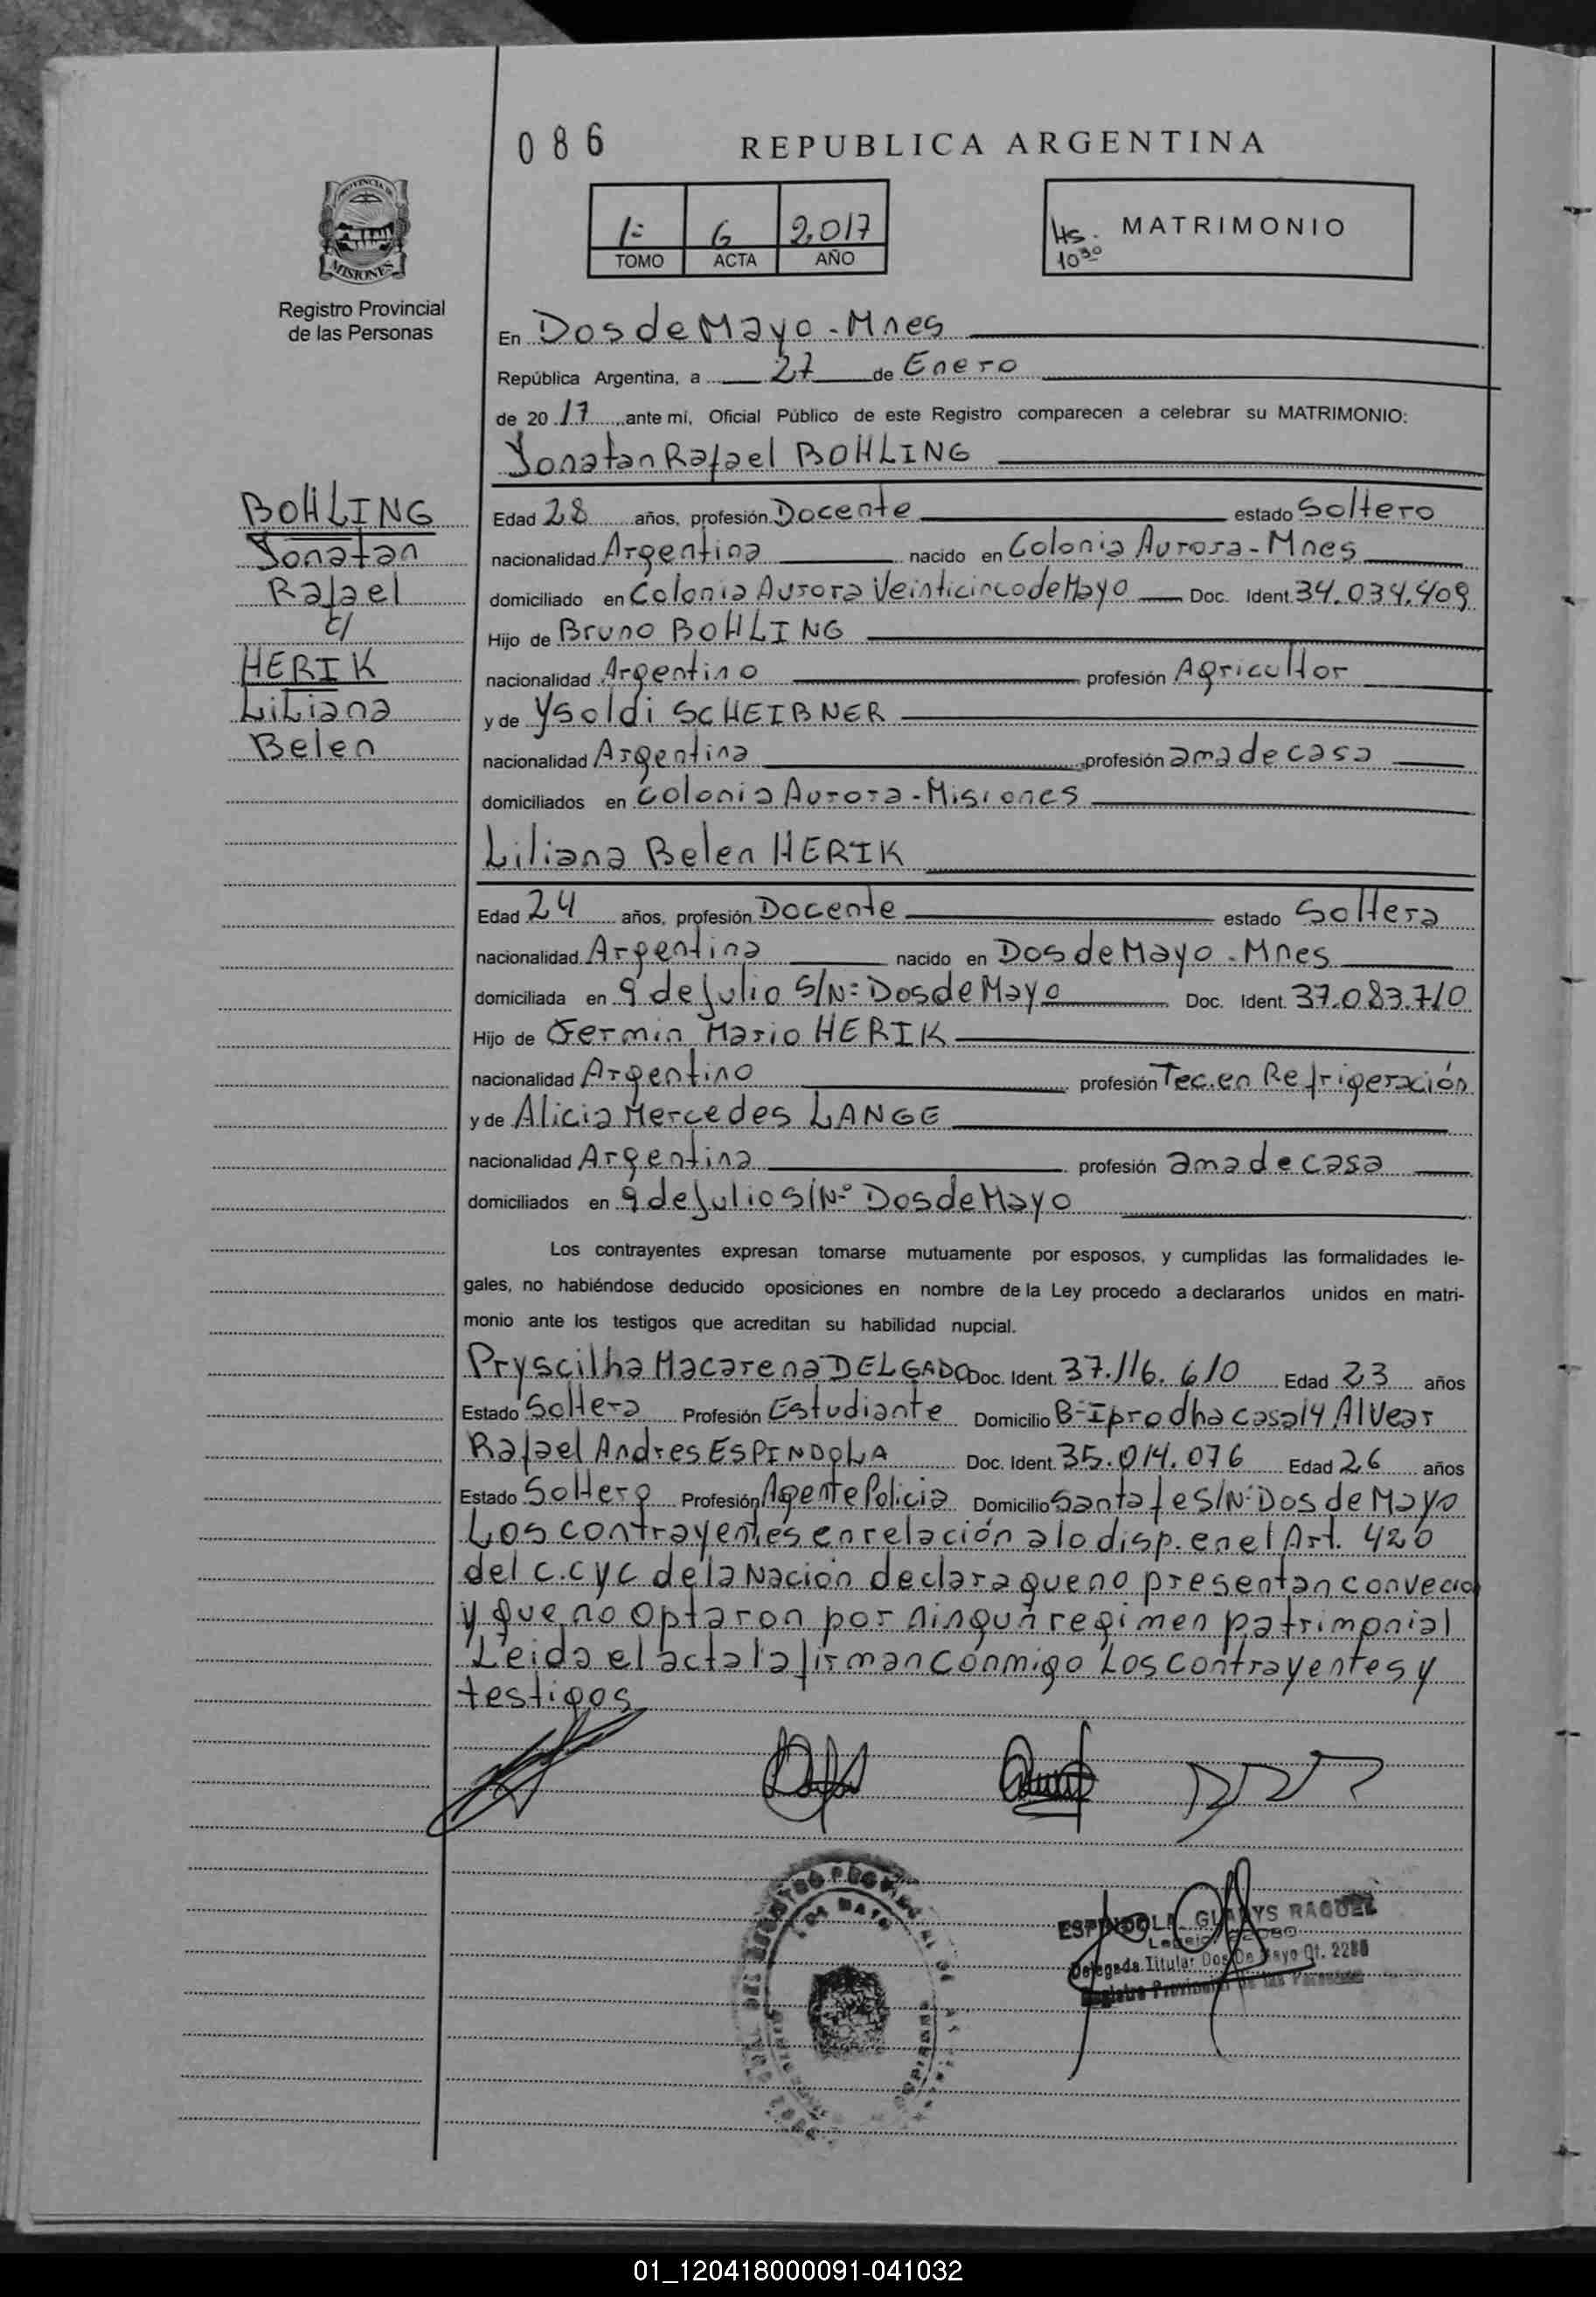 086
REPUBLICA ARGENTINA
1= 6 2.017
TOMO ACTA AÑO
Hs. 10³⁰ MATRIMONIO
PROVINCIA DE
MISIONES
Registro Provincial
de las Personas
En Dos de Mayo - Mnes
República Argentina, a 27 de Enero
de 2017 ante mí, Oficial Público de este Registro comparecen a celebrar su MATRIMONIO:
Jonatan Rafael BOHLING
BOHLING
Jonatan
Rafael
c/
HERIK
Liliana
Belen
Edad 28 años, profesión Docente estado Soltero
nacionalidad Argentina nacido en Colonia Aurora - Mnes
domiciliado en Colonia Aurora Veinticinco de Mayo Doc. Ident. 34.034.409
Hijo de Bruno BOHLING
nacionalidad Argentino profesión Agricultor
y de Ysoldi SCHEIBNER
nacionalidad Argentina profesión ama de casa
domiciliados en Colonia Aurora - Misiones
Liliana Belen HERIK
Edad 24 años, profesión Docente estado Soltera
nacionalidad Argentina nacido en Dos de Mayo - Mnes
domiciliada en 9 de Julio S/N= Dos de Mayo Doc. Ident. 37.083.710
Hijo de Fermin Mario HERIK
nacionalidad Argentino profesión Tec. en Refrigeración
y de Alicia Mercedes LANGE
nacionalidad Argentina profesión ama de casa
domiciliados en 9 de Julio S/Nº Dos de Mayo
Los contrayentes expresan tomarse mutuamente por esposos, y cumplidas las formalidades le-
gales, no habiéndose deducido oposiciones en nombre de la Ley procedo a declararlos unidos en matri-
monio ante los testigos que acreditan su habilidad nupcial.
Pryscilha Macarena DELGADO Doc. Ident. 37.116.610 Edad 23 años
Estado Soltera Profesión Estudiante Domicilio B= Iprodha casa 14 Alvear
Rafael Andres ESPINDOLA Doc. Ident. 35.014.076 Edad 26 años
Estado Soltero Profesión Agente Policia Domicilio Santa fe S/Nº Dos de Mayo
Los contrayentes en relación a lo disp. en el Art. 420
del C.C y C de la Nación declara que no presentan convecio
y que no optaron por ningún regimen patrimonial
Leida el acta la firman conmigo Los contrayentes y
testigos
ESPINDOLA GLADYS RAQUEL
Delegada Titular Dos De Mayo Of. 2286
Registro Provincial de las Personas
01_120418000091-041032